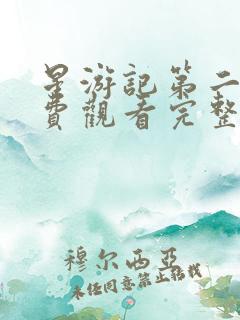 星游記第二
費觀看完整
穆尔西亞
未经同意禁止转载